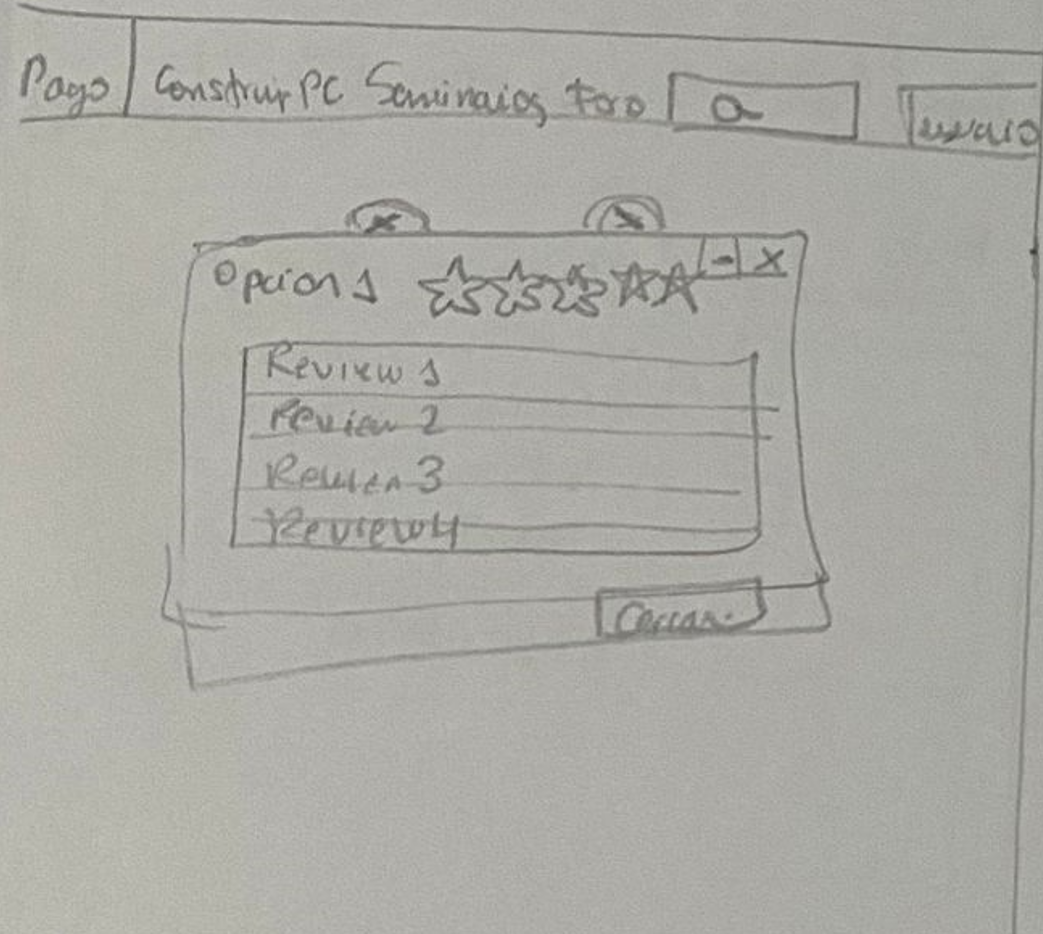 Pago Construir PC Seminaios Foro
Opcion 1 - X
Review 1
Review 2
Review 3
Review 4
Cerrar